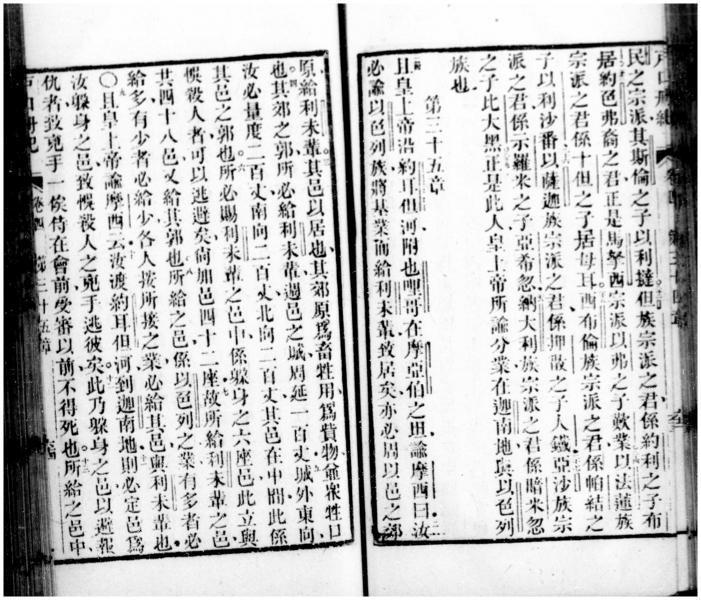 戶口冊紀 卷四 第三十四章
民之宗派其斯倫之子以利撻但族宗派之君係約利之子布
居約邑弗裔之君正是馬拏西宗派以弗之子歎業以法蓮族
宗派之君係十但之子居母耳西布倫族宗派之君係帕結之
子以利沙番以薩迦族宗派之君係押散之子人鐵亞沙族宗
派之君係示羅米之子亞希忽納大利族宗派之君係暗米忽
之子比大黑正是此人皇上帝所諭分業在迦南地與以色列
族也
第三十五章
且皇上帝沿約耳但河附也耶哥在摩亞伯之坦諭摩西曰汝
必諭以色列族將基業而給利未輩致居矣亦必周以邑之郊
原給利未輩其邑以居也其郊原為畜牲用為貨物並眾牲口
也其郊之郭所必給利未輩邊邑之城周延一百丈城外東向
汝必量度二百丈南向二百丈北向二百丈其邑在中間此係
其邑之郭也所必賜利未輩之邑中係躲身之六座邑此立與
悞殺人者可以逃避矣尚加邑四十二座故所給利未輩之邑
共四十八邑又給其郭也所給之邑係以色列之業有多者必
給多有少者必給少各人按所接之業必給其邑與利未輩也
〇且皇上帝諭摩西云汝渡約耳但河到迦南地則必定邑為
汝躲身之邑致悞殺人之兇手逃彼矣此乃躲身之邑以避報
仇者致兇手一俟待在會前受審以前不得死也所給之邑中
戶口冊紀 卷四 第三十五章